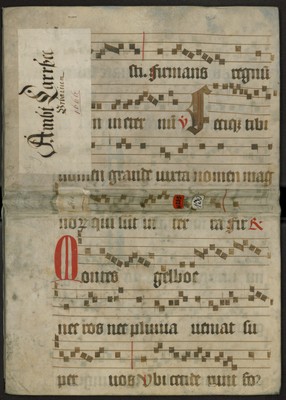 sti. firmans regnū
in eter nū ℣ Feciq; tibi
nomen grande iuxta nomen mag
noꝝ qui sūt in ter ra Fir
Montes gelboe
nec ros nec pluuia ueniat su
per uos ℣ vbi cecide runt for